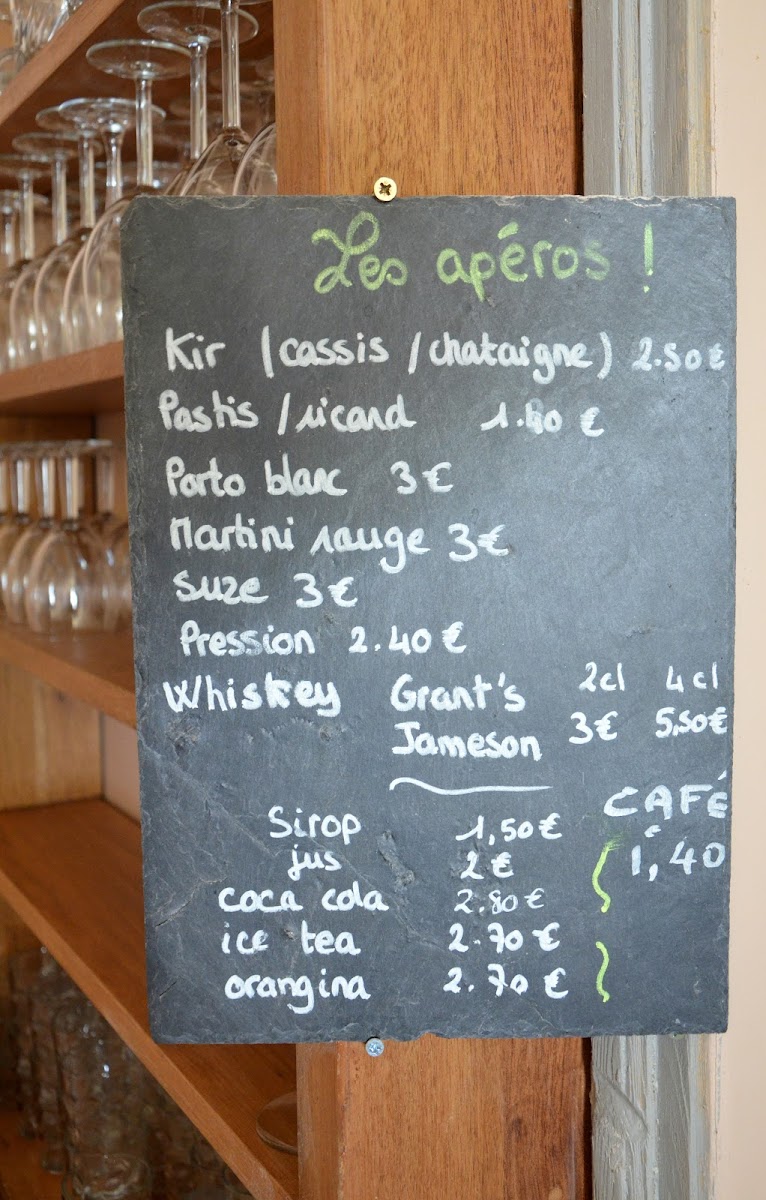 Les apéros !
Kir (cassis / chataigne) 2.50€
Pastis / ricard 1.40 €
Porto blanc 3€
Martini rouge 3€
Suze 3€
Pression 2.40€
Whiskey Grant's 2cl 4cl
Jameson 3€ 5,50€
CAFÉ
1,40
Sirop 1,50€
jus 2€
coca cola 2.80€
ice tea 2.70€
orangina 2.70€